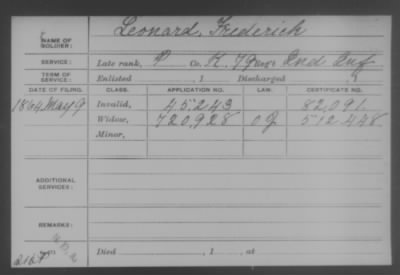 NAME OF SOLDIER: Leonard, Frederick
SERVICE: Late rank, P Co. K, 79 Reg't Ind Inf
TERM OF SERVICE: Enlisted , 1 Discharged , 1
DATE OF FILING. CLASS. APPLICATION NO. LAW. CERTIFICATE NO.
1864 May 9 Invalid, 45243 82,091
Widow, 720,928 O J 512 448
Minor,
ADDITIONAL SERVICES:
REMARKS:
Died , 1 , at